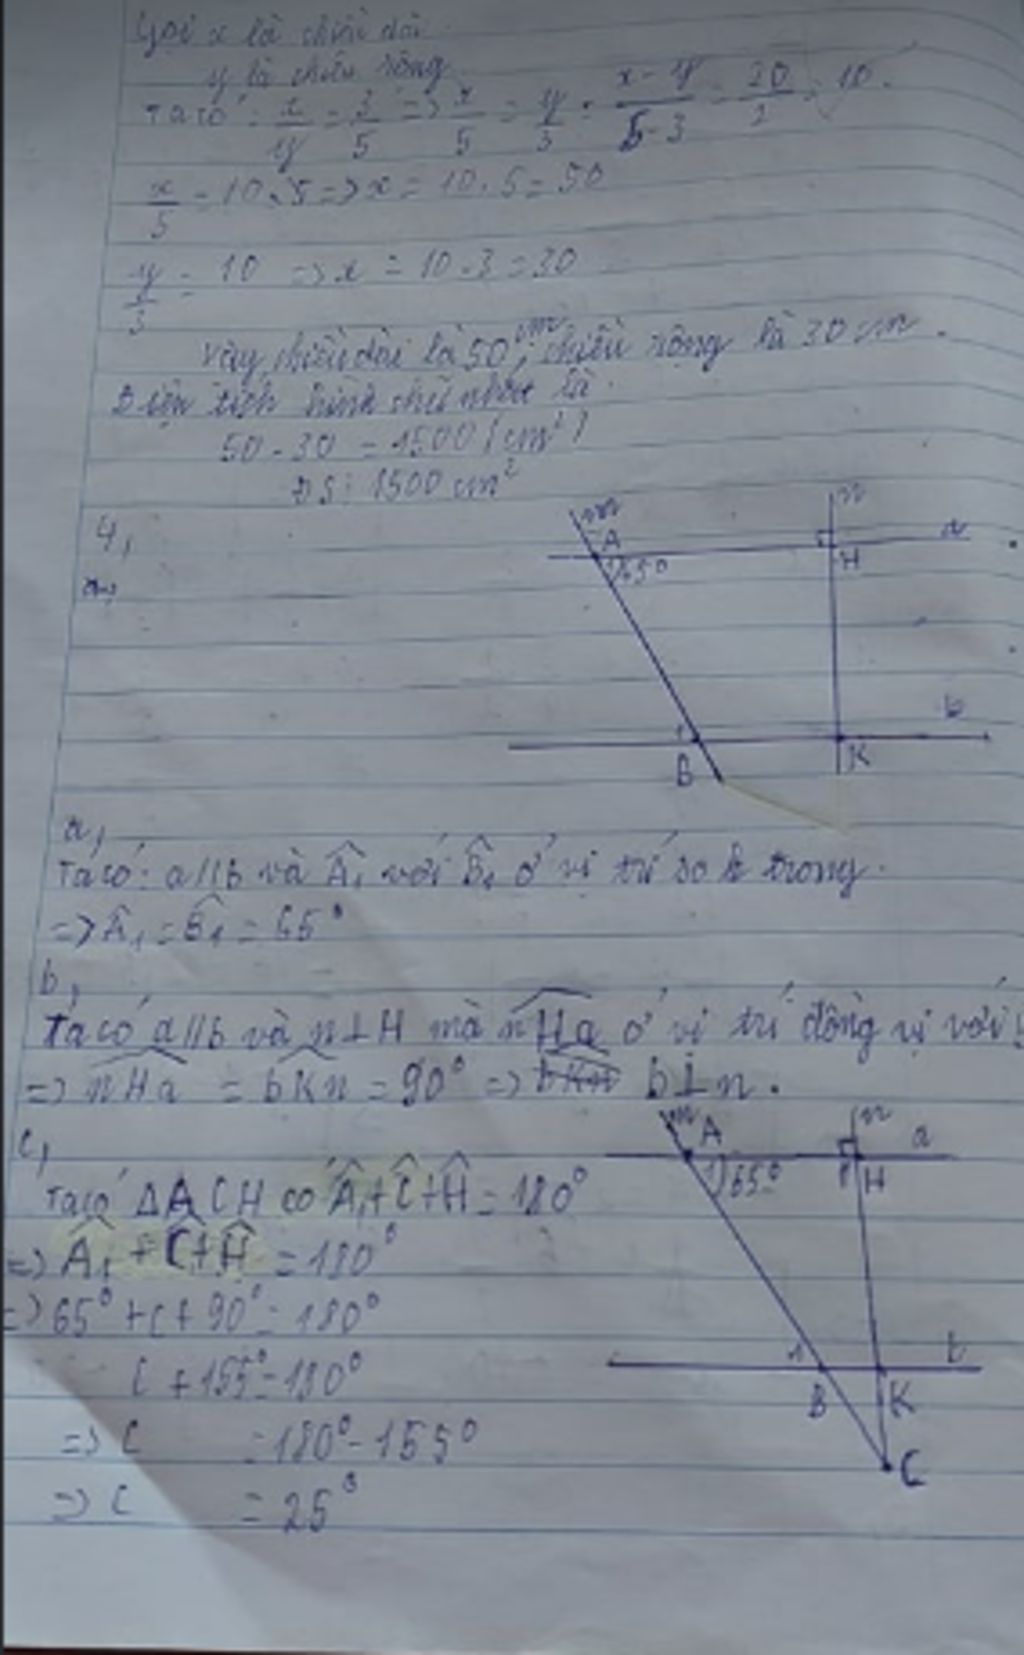 Gọi x là chiều dài
y là chiều rộng
Ta có: x/y = 3/5 => x/5 = y/3 = x-y/5-3 = 20/2 = 10.
x/5 = 10.5 => x = 10.5 = 50
y/3 = 10 => x = 10.3 = 30
Vậy chiều dài là 50 cm, chiều rộng là 30 cm.
Diện tích hình chữ nhật là
50.30 = 1500 (cm²)
ĐS: 1500 cm²
4,
m
n
A
a
65°
H
b
B
K
a,
Ta có: a//b và Â₁ với B̂₁ ở vị trí so le trong.
=> Â₁ = B̂₁ = 65°
b,
Ta có a//b và n⊥H mà nHa ở vị trí đồng vị với
=> nHa = bKn = 90° => b⊥n.
c,
m
A
n
a
1
65°
1
H
Ta có ΔACH có Â₁+Ĉ+Ĥ = 180°
=> Â₁ + Ĉ+Ĥ = 180°
=> 65° + C + 90° = 180°
C + 155° = 180°
1
B
K
=> C = 180° - 155°
C
=> C = 25°